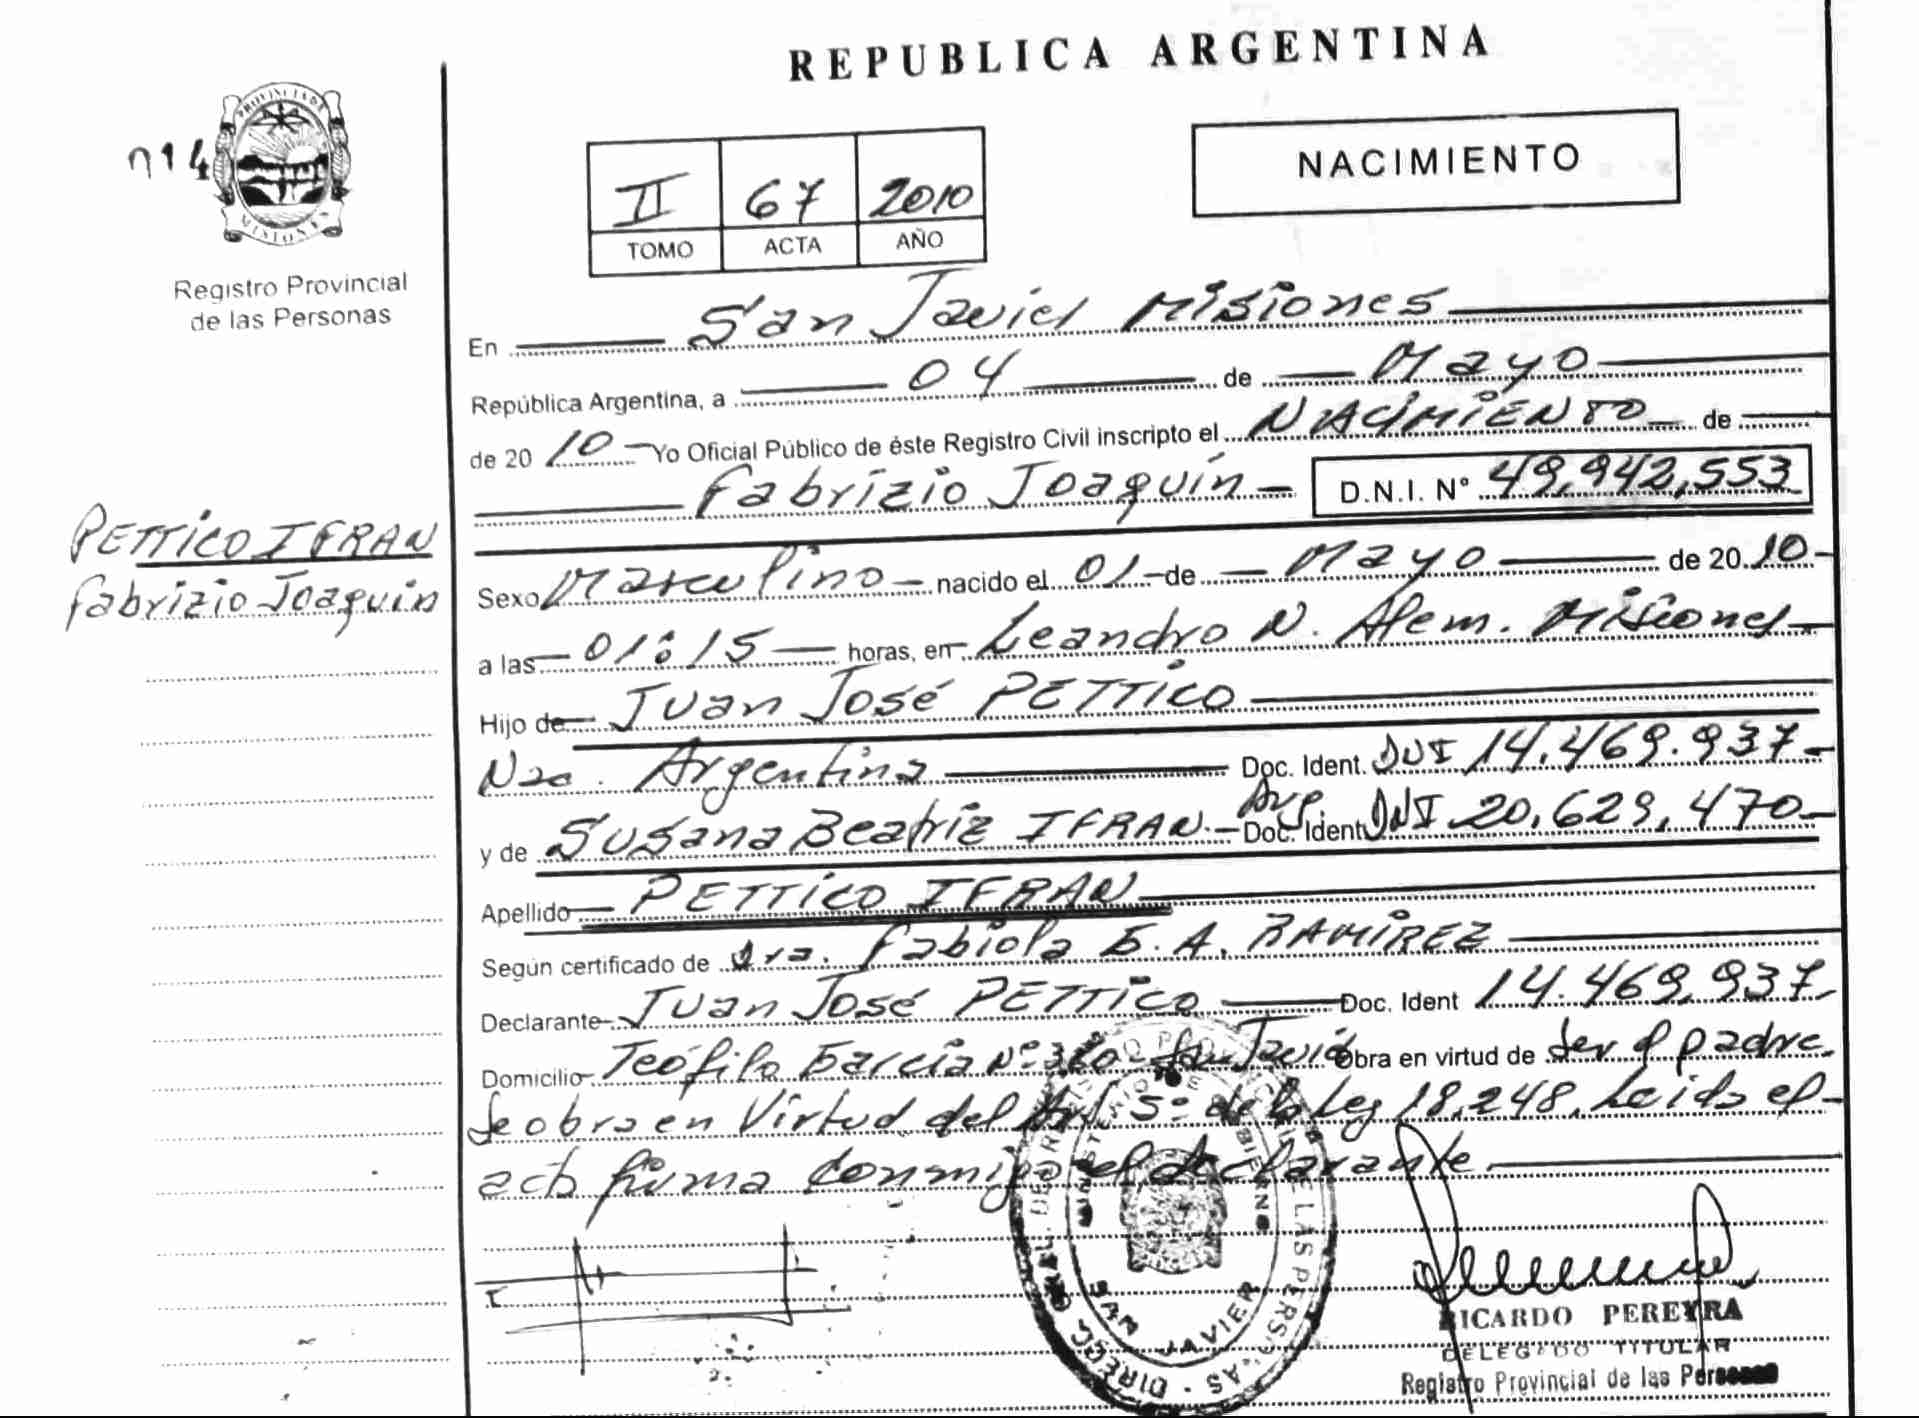 REPUBLICA ARGENTINA
PROVINCIA DE
MISIONES
Registro Provincial
de las Personas
II 67 2010
TOMO ACTA AÑO
NACIMIENTO
En San Javier Misiones
República Argentina, a 04 de Mayo
de 20 10 Yo Oficial Público de éste Registro Civil inscripto el NACIMIENTO de
Fabrizio Joaquín D.N.I. N° 49,942,553
PETTICO IFRAN
Fabrizio Joaquín
Sexo Masculino nacido el 01 de Mayo de 20 10
a las 01:15 horas, en Leandro N. Alem. Misiones
Hijo de Juan José PETTICO
Nac. Argentina Doc. Ident. DNI 14.469.937
Arg.
y de Susana Beatriz IFRAN. Doc. Ident DNI 20,629,470
Apellido PETTICO IFRAN
Según certificado de Dra. Fabiola E. A. RAMÍREZ
Declarante Juan José PETTICO Doc. Ident 14.469,937
Domicilio Teófilo García N° San Javier Obra en virtud de ser el padre.
Se obra en Virtud del Art 5° de la Ley 18,248. Leida el
acta firma conmigo el declarante
MINISTERIO DE GOBIERNO
SAN JAVIER
RICARDO PEREYRA
DELEGADO TITULAR
Registro Provincial de las Personas